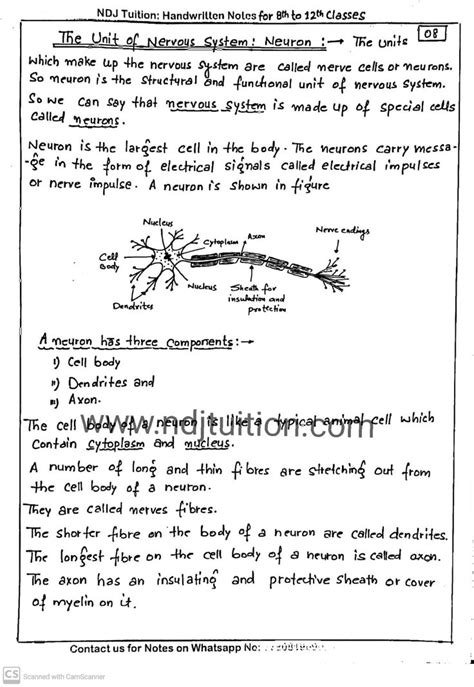 NDJ Tuition: Handwritten Notes for 8th to 12th Classes
08
The Unit of Nervous System: Neuron :→ The units
which make up the nervous system are called nerve cells or neurons.
So neuron is the structural and functional unit of nervous system.
So we can say that nervous system is made up of special cells
called neurons.
Neuron is the largest cell in the body. The neurons carry messa-
-ge in the form of electrical signals called electrical impulses
or nerve impulse. A neuron is shown in figure
Nucleus
Cytoplasm
Axon
Nerve endings
Cell
Body
Dendrites
Nucleus
Sheath for
insulation and
protection
A neuron has three components:→
i) Cell body
ii) Dendrites and
iii) Axon.
www.ndjtuition.com
The cell body of a neuron is like a typical animal cell which
contain cytoplasm and nucleus.
A number of long and thin fibres are stretching out from
the cell body of a neuron.
They are called nerves fibres.
The shorter fibre on the body of a neuron are called dendrites.
The longest fibre on the cell body of a neuron is called axon.
The axon has an insulating and protective sheath or cover
of myelin on it.
Contact us for Notes on Whatsapp No:
CS Scanned with CamScanner